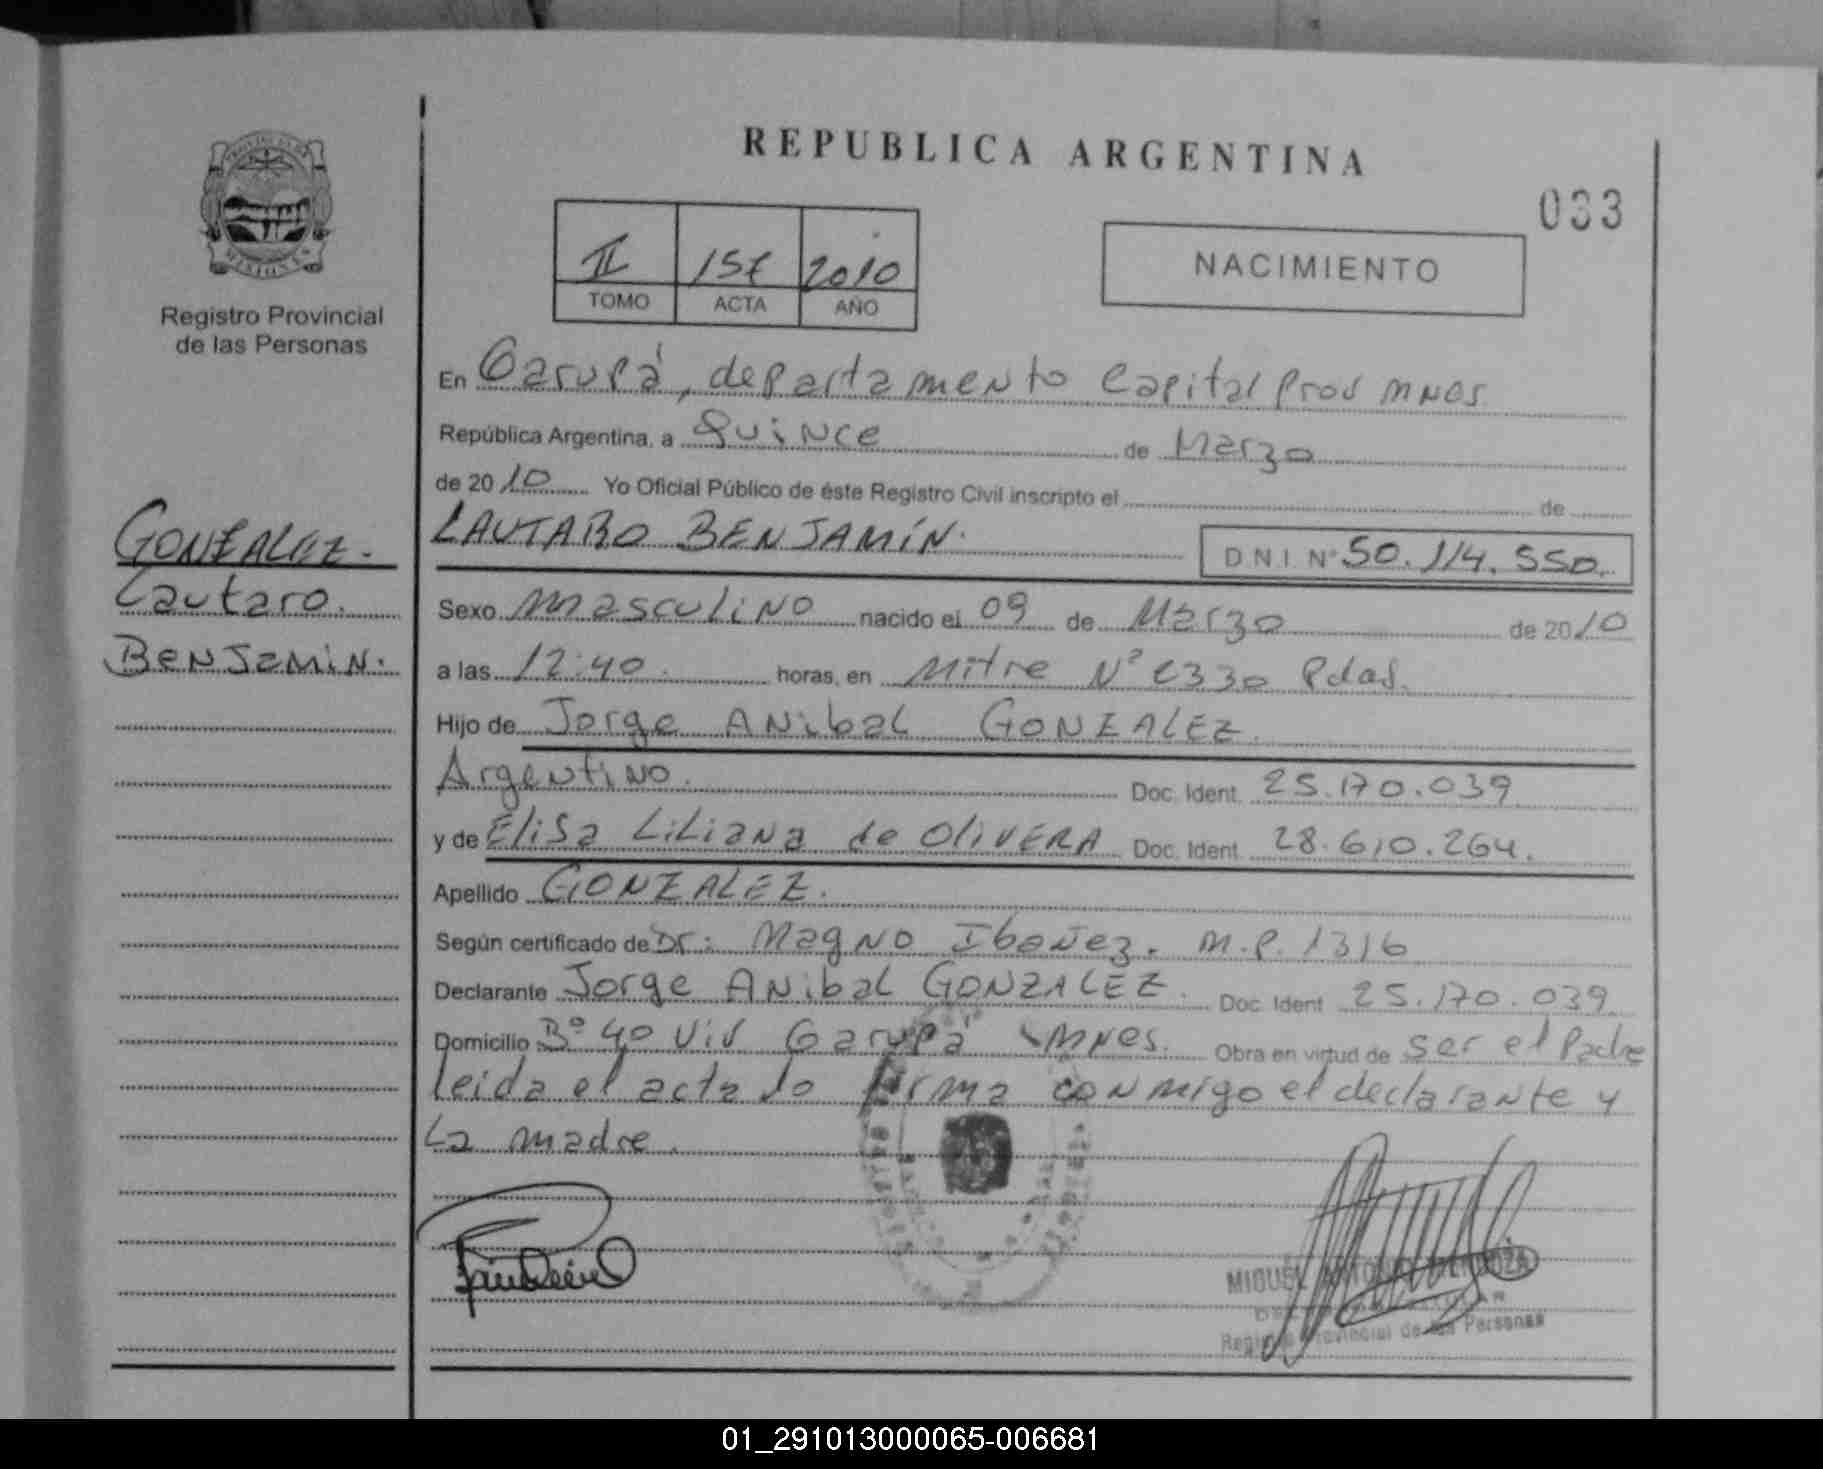 REPUBLICA ARGENTINA
033
PROVINCIA DE
MISIONES
Registro Provincial
de las Personas
II
2010
TOMO
ACTA
AÑO
NACIMIENTO
En Garupá, departamento Capital Prov mnes
República Argentina, a Quince de Marzo
de 2010 Yo Oficial Público de éste Registro Civil inscripto el de
GONZALEZ.
Lautaro.
BenJamin.
LAUTARO BENJAMÍN. D.N.I. N° 50.114.550.
Sexo masculino nacido el 09 de Marzo de 2010
a las 12:40. horas, en Mitre N° 2330 Pdas.
Hijo de Jorge Anibal GONZALEZ.
Argentino. Doc. Ident. 25.170.039
y de Elisa Liliana de OliVERA Doc. Ident. 28.610.264.
Apellido GONZALEZ.
Según certificado de Dr: Magno Ibañez. M.P. 1316
Declarante Jorge Anibal GONZALEZ. Doc. Ident 25.170.039
Domicilio B° 40 Viv Garupá mnes. Obra en virtud de ser el Padre
leida el acta lo firma conmigo el declarante y
La madre.
MIGUEL ANTONIO MENDOZA
Registro Provincial de las Personas
01_291013000065-006681